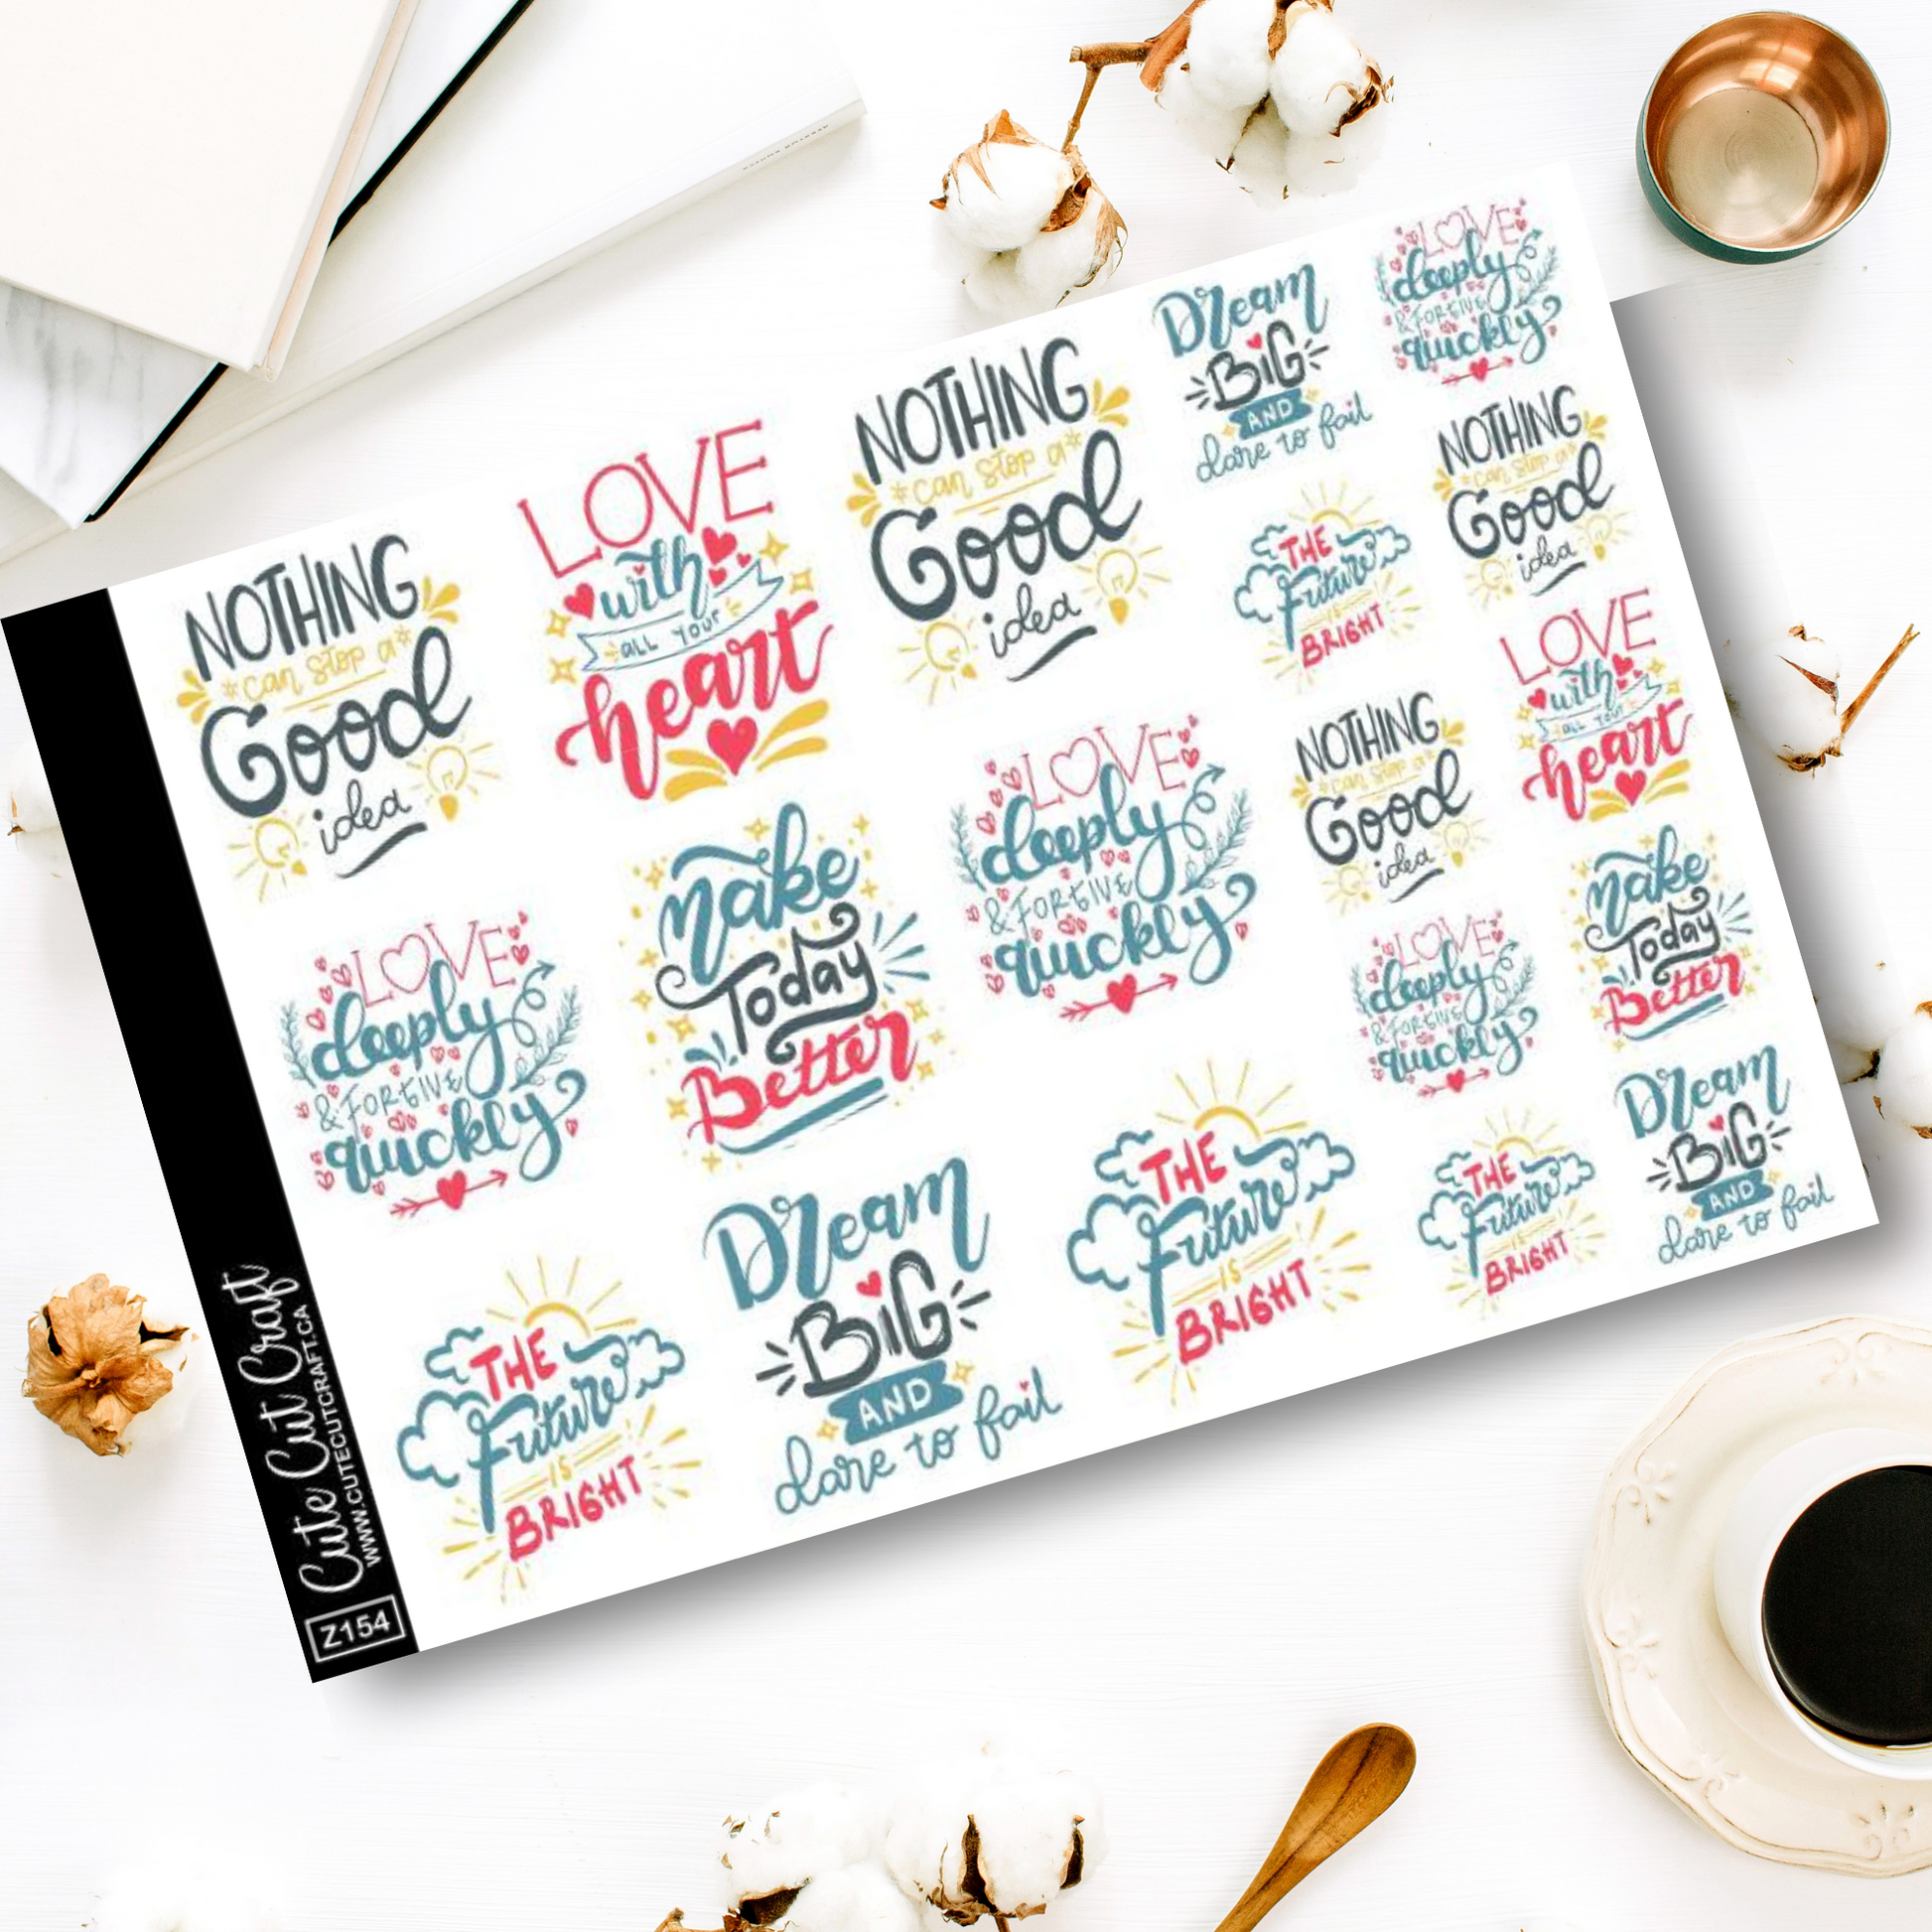 NOTHING
*can stop a*
Good
idea
LOVE
with
ALL YOUR
heart
NOTHING
*can stop a*
Good
idea
LOVE
deeply
& FORGIVE
quickly
Make
Today
Better
LOVE
deeply
& FORGIVE
quickly
THE
Future
IS
BRIGHT
Dream
BIG
AND
dare to fail
THE
Future
IS
BRIGHT
Dream
BIG
AND
dare to fail
LOVE
deeply
& FORGIVE
quickly
THE
Future
IS
BRIGHT
NOTHING
*can stop a*
Good
idea
NOTHING
*can stop a*
Good
idea
LOVE
with
ALL YOUR
heart
LOVE
deeply
& FORGIVE
quickly
Make
Today
Better
THE
Future
IS
BRIGHT
Dream
BIG
AND
dare to fail
Cute Cut Craft
WWW.CUTECUTCRAFT.CA
Z154